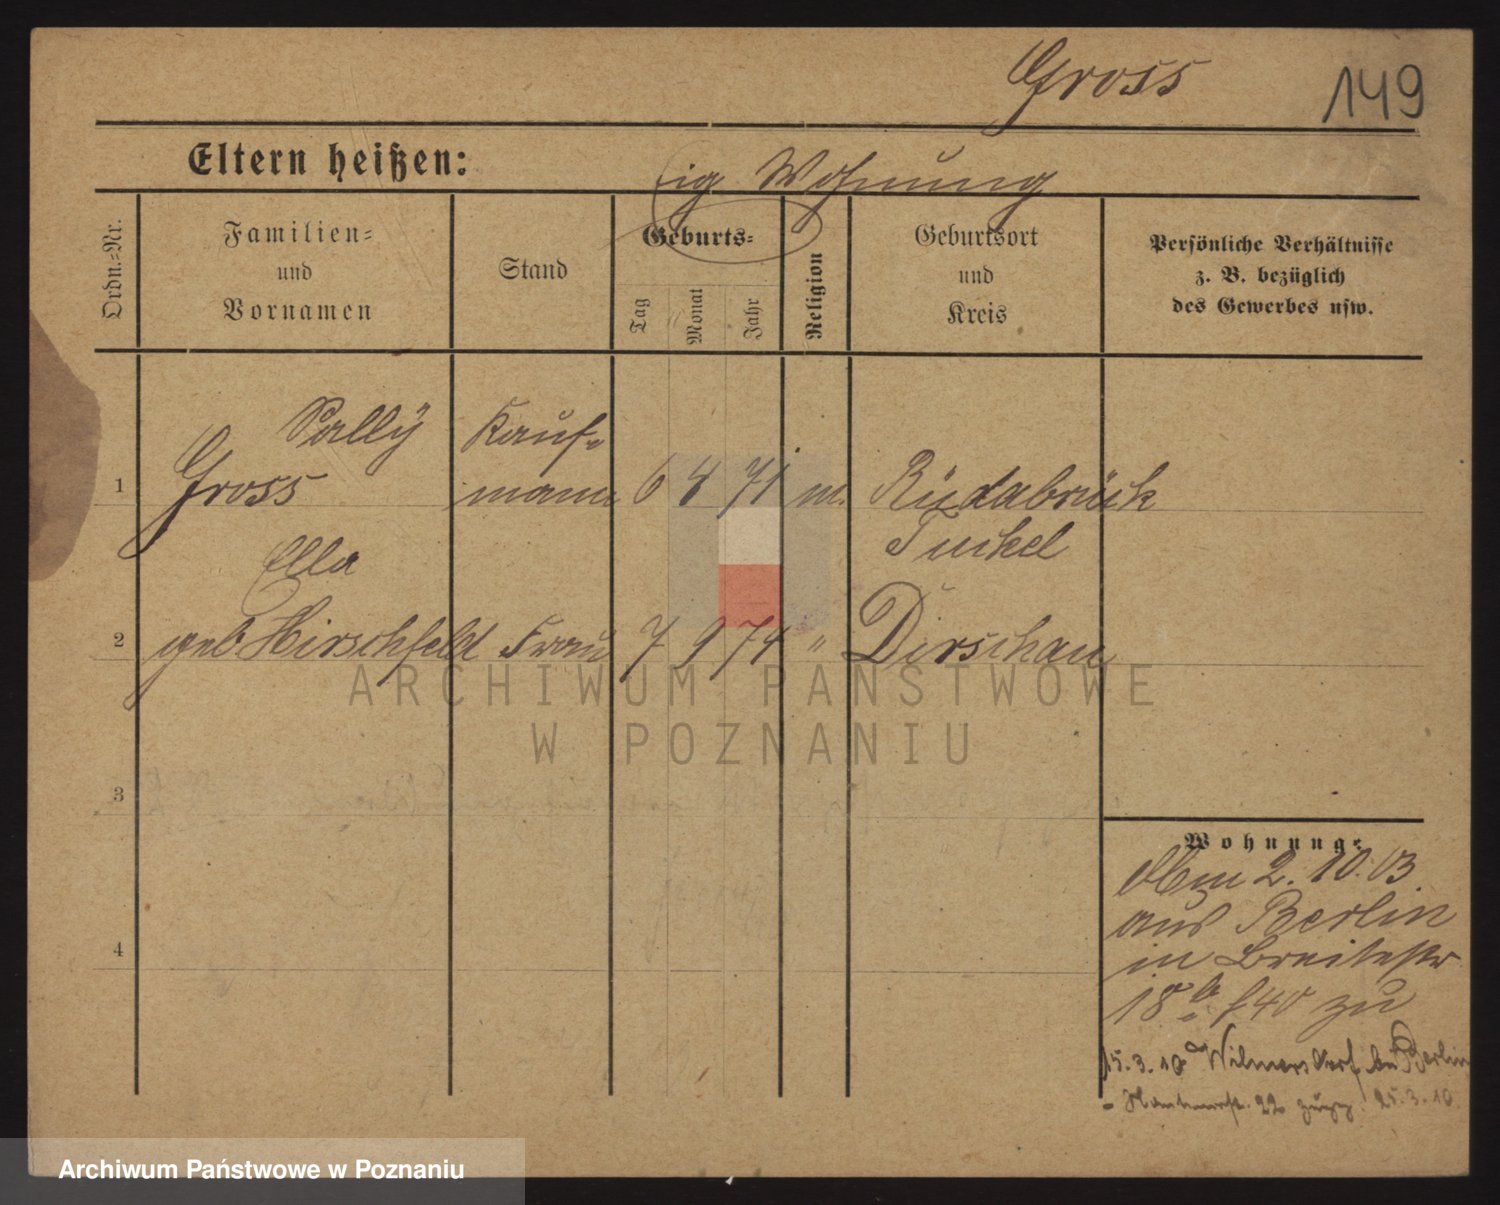 Gross
149
Eltern heißen:
eig Wohnung
Ordn.-Nr.
Familien-
und
Vornamen
Stand
Geburts-
Tag
Monat
Jahr
Religion
Geburtsort
und
Kreis
Persönliche Verhältnisse
z. B. bezüglich
des Gewerbes usw.
Sally Kauf-
1 Gross mann 6 8 71 m. Rüdabrück
Tuchel
Ella
2 geb Hirschfeld Frau 7 9 74 " Dirschau
3
4
Wohnung:
2. 10. 03
aus Berlin
in Breitestr
18 a f 40 zu
15.3.10 Wilmersdorf bei Berlin
22 zuzg. 25.3.10.
ARCHIWUM PAŃSTWOWE
W POZNANIU
Archiwum Państwowe w Poznaniu